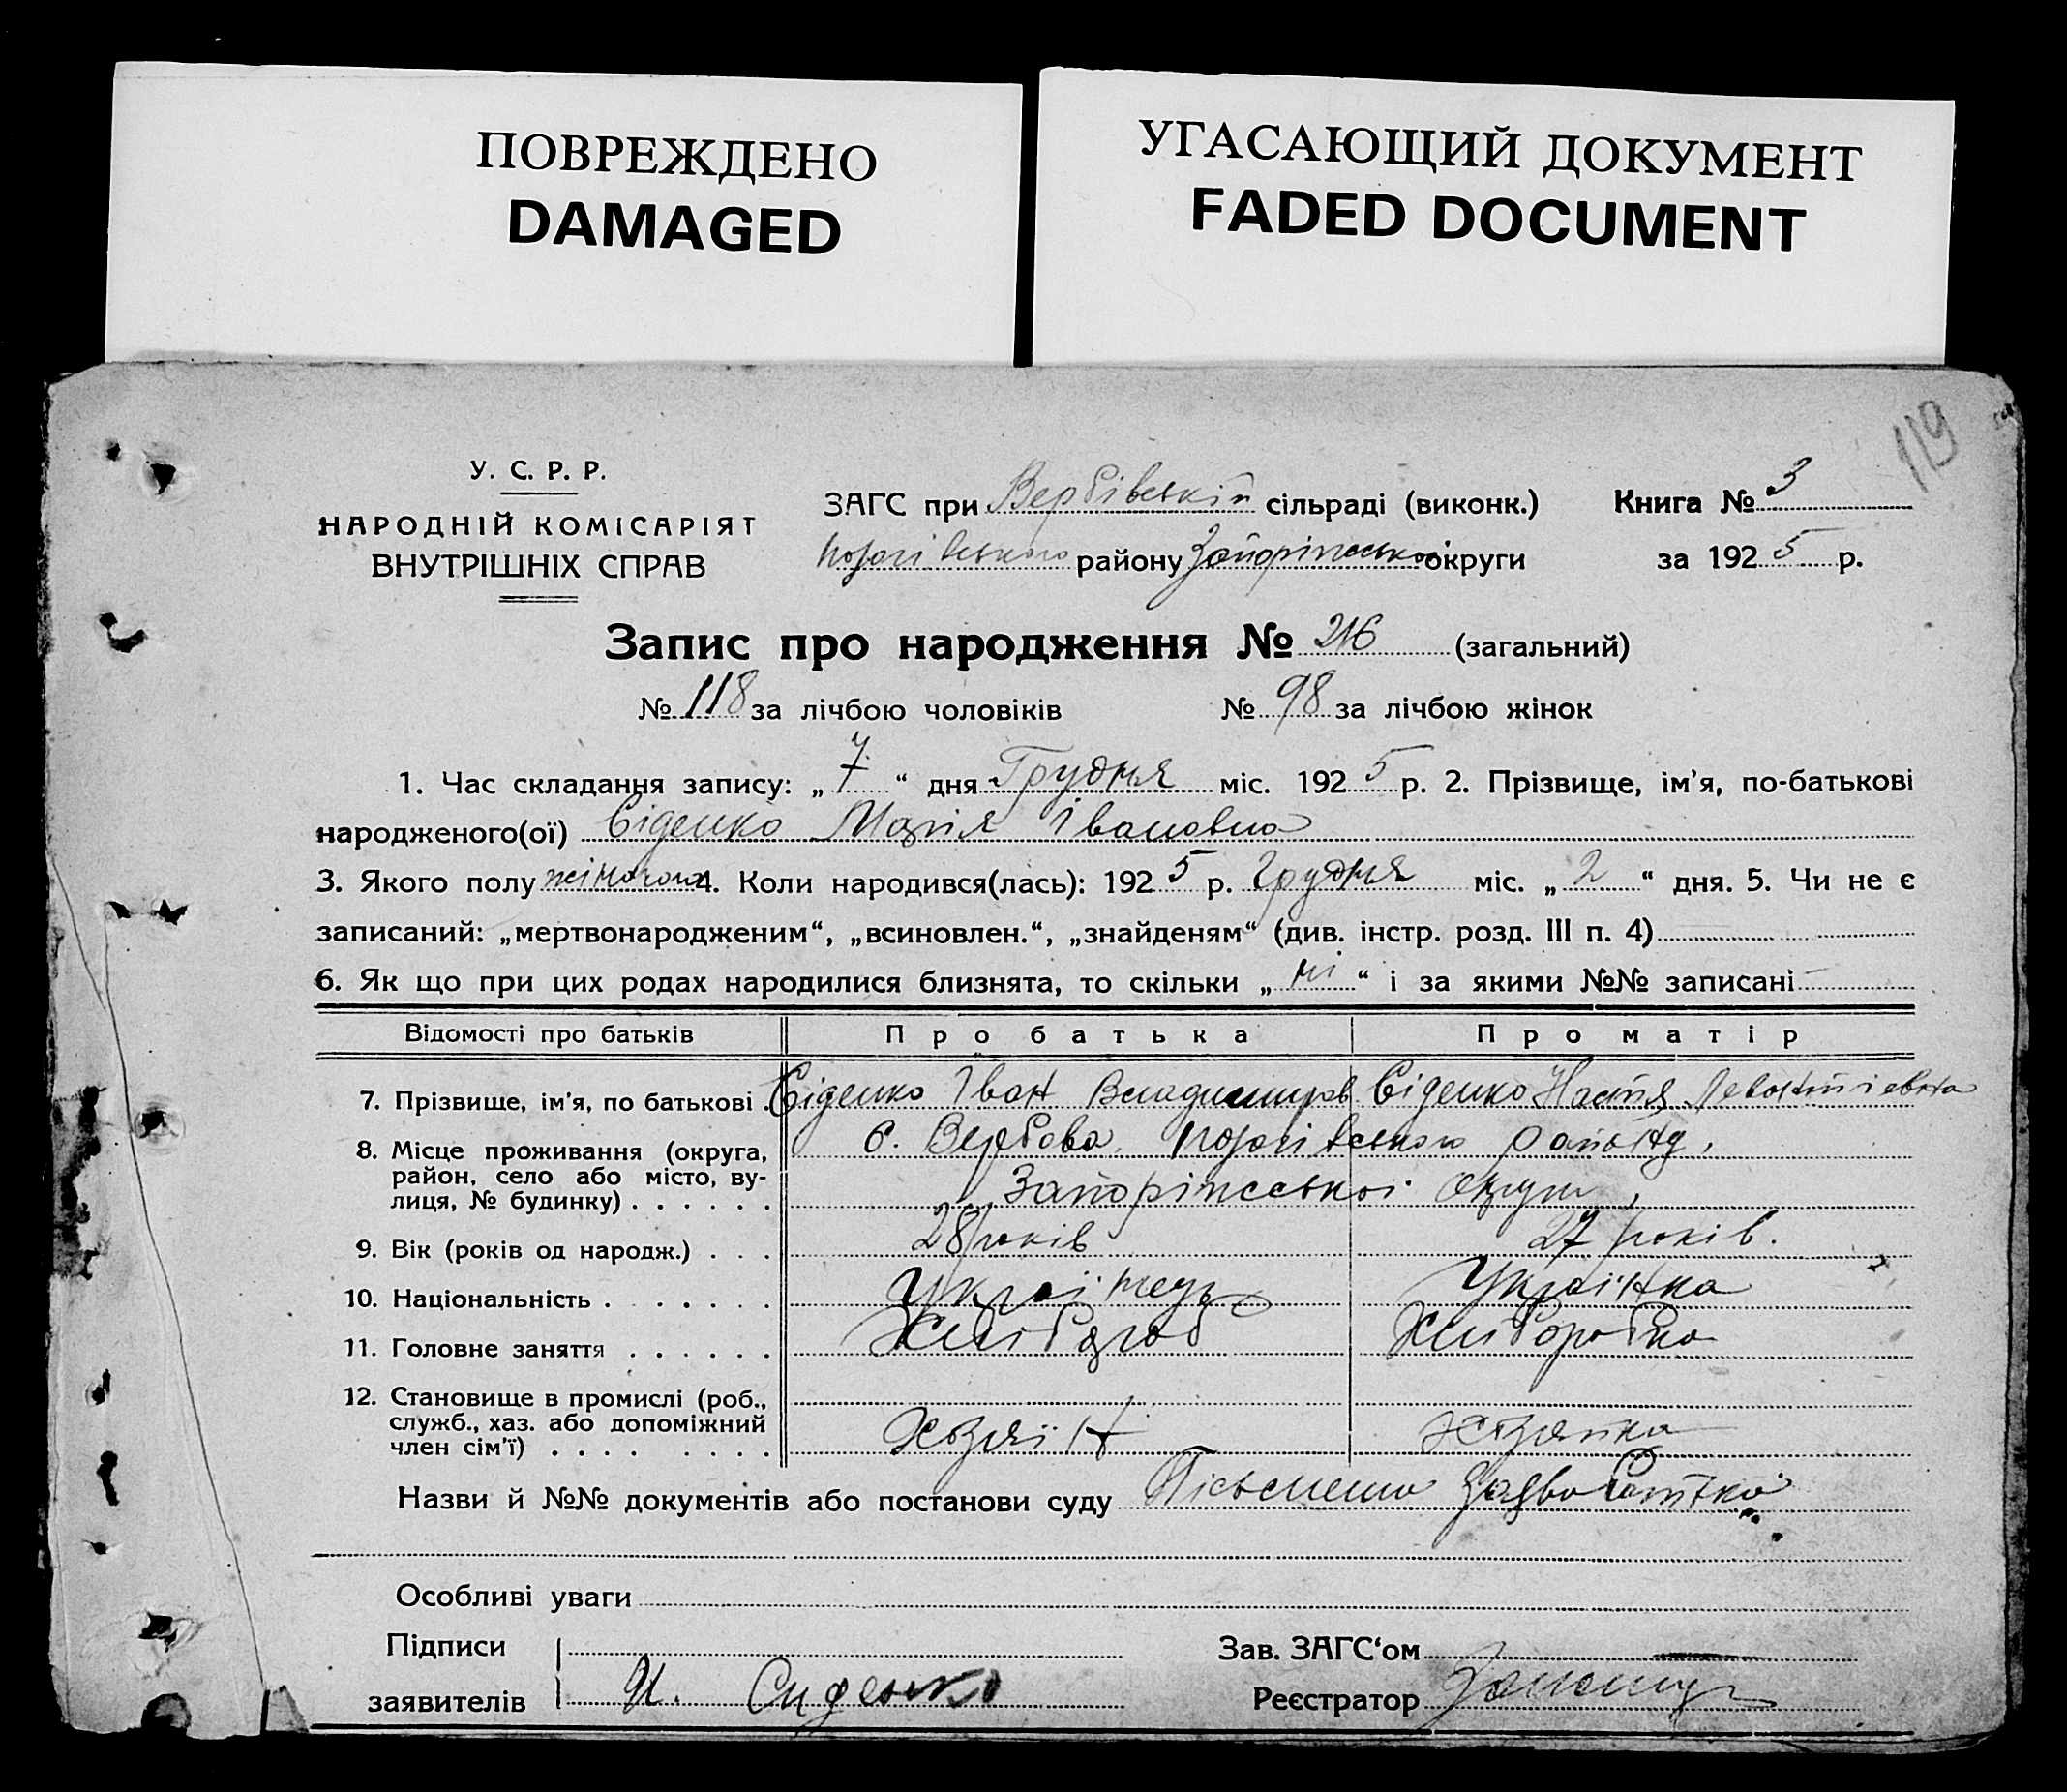 ПОВРЕЖДЕНО
DAMAGED
УГАСАЮЩИЙ ДОКУМЕНТ
FADED DOCUMENT
119
У. С. Р. Р.
НАРОДНІЙ КОМІСАРІЯТ
ВНУТРІШНІХ СПРАВ
ЗАГС при Вербівській сільраді (виконк.)
Пологівського району Запоріжської округи
Книга № 3
за 1925 р.
Запис про народження № 216 (загальний)
№ 118 за лічбою чоловіків № 98 за лічбою жінок
1. Час складання запису: „7“ дня Грудня міс. 1925 р. 2. Прізвище, ім'я, по-батькові
народженого(ої) Сіденко Марія Івановна
3. Якого полу жіночого 4. Коли народився(лась): 1925 р. Грудня міс. „2“ дня. 5. Чи не є
записаний: „мертвонародженим“, „всиновлен.“, „знайденям“ (див. інстр. розд. III п. 4)
6. Як що при цих родах народилися близнята, то скільки „ні“ і за якими №№ записані —
Відомості про батьків Про батька Про матір
7. Прізвище, ім'я, по батькові . Сіденко Іван Владимиров Сіденко Настя
8. Місце проживання (округа, район, село або місто, ву-
лиця, № будинку) . . . . . . с. Вербова, Пологівського району,
Запоріжської округи,
9. Вік (років од народж.) . . . 28 років 27 років.
10. Національність . . . . . . Українець Українка
11. Головне заняття . . . . . . Хлібороб Хлiборобка
12. Становище в промислі (роб.,
служб., хаз. або допоміжний
член сім'ї) . . . . . . . . Хозяїн Хозяйка
Назви й №№ документів або постанови суду Пісьмена заява батька
Особливі уваги
Підписи
заявителів И. Сиденко
Зав. ЗАГС‘ом
Реєстратор